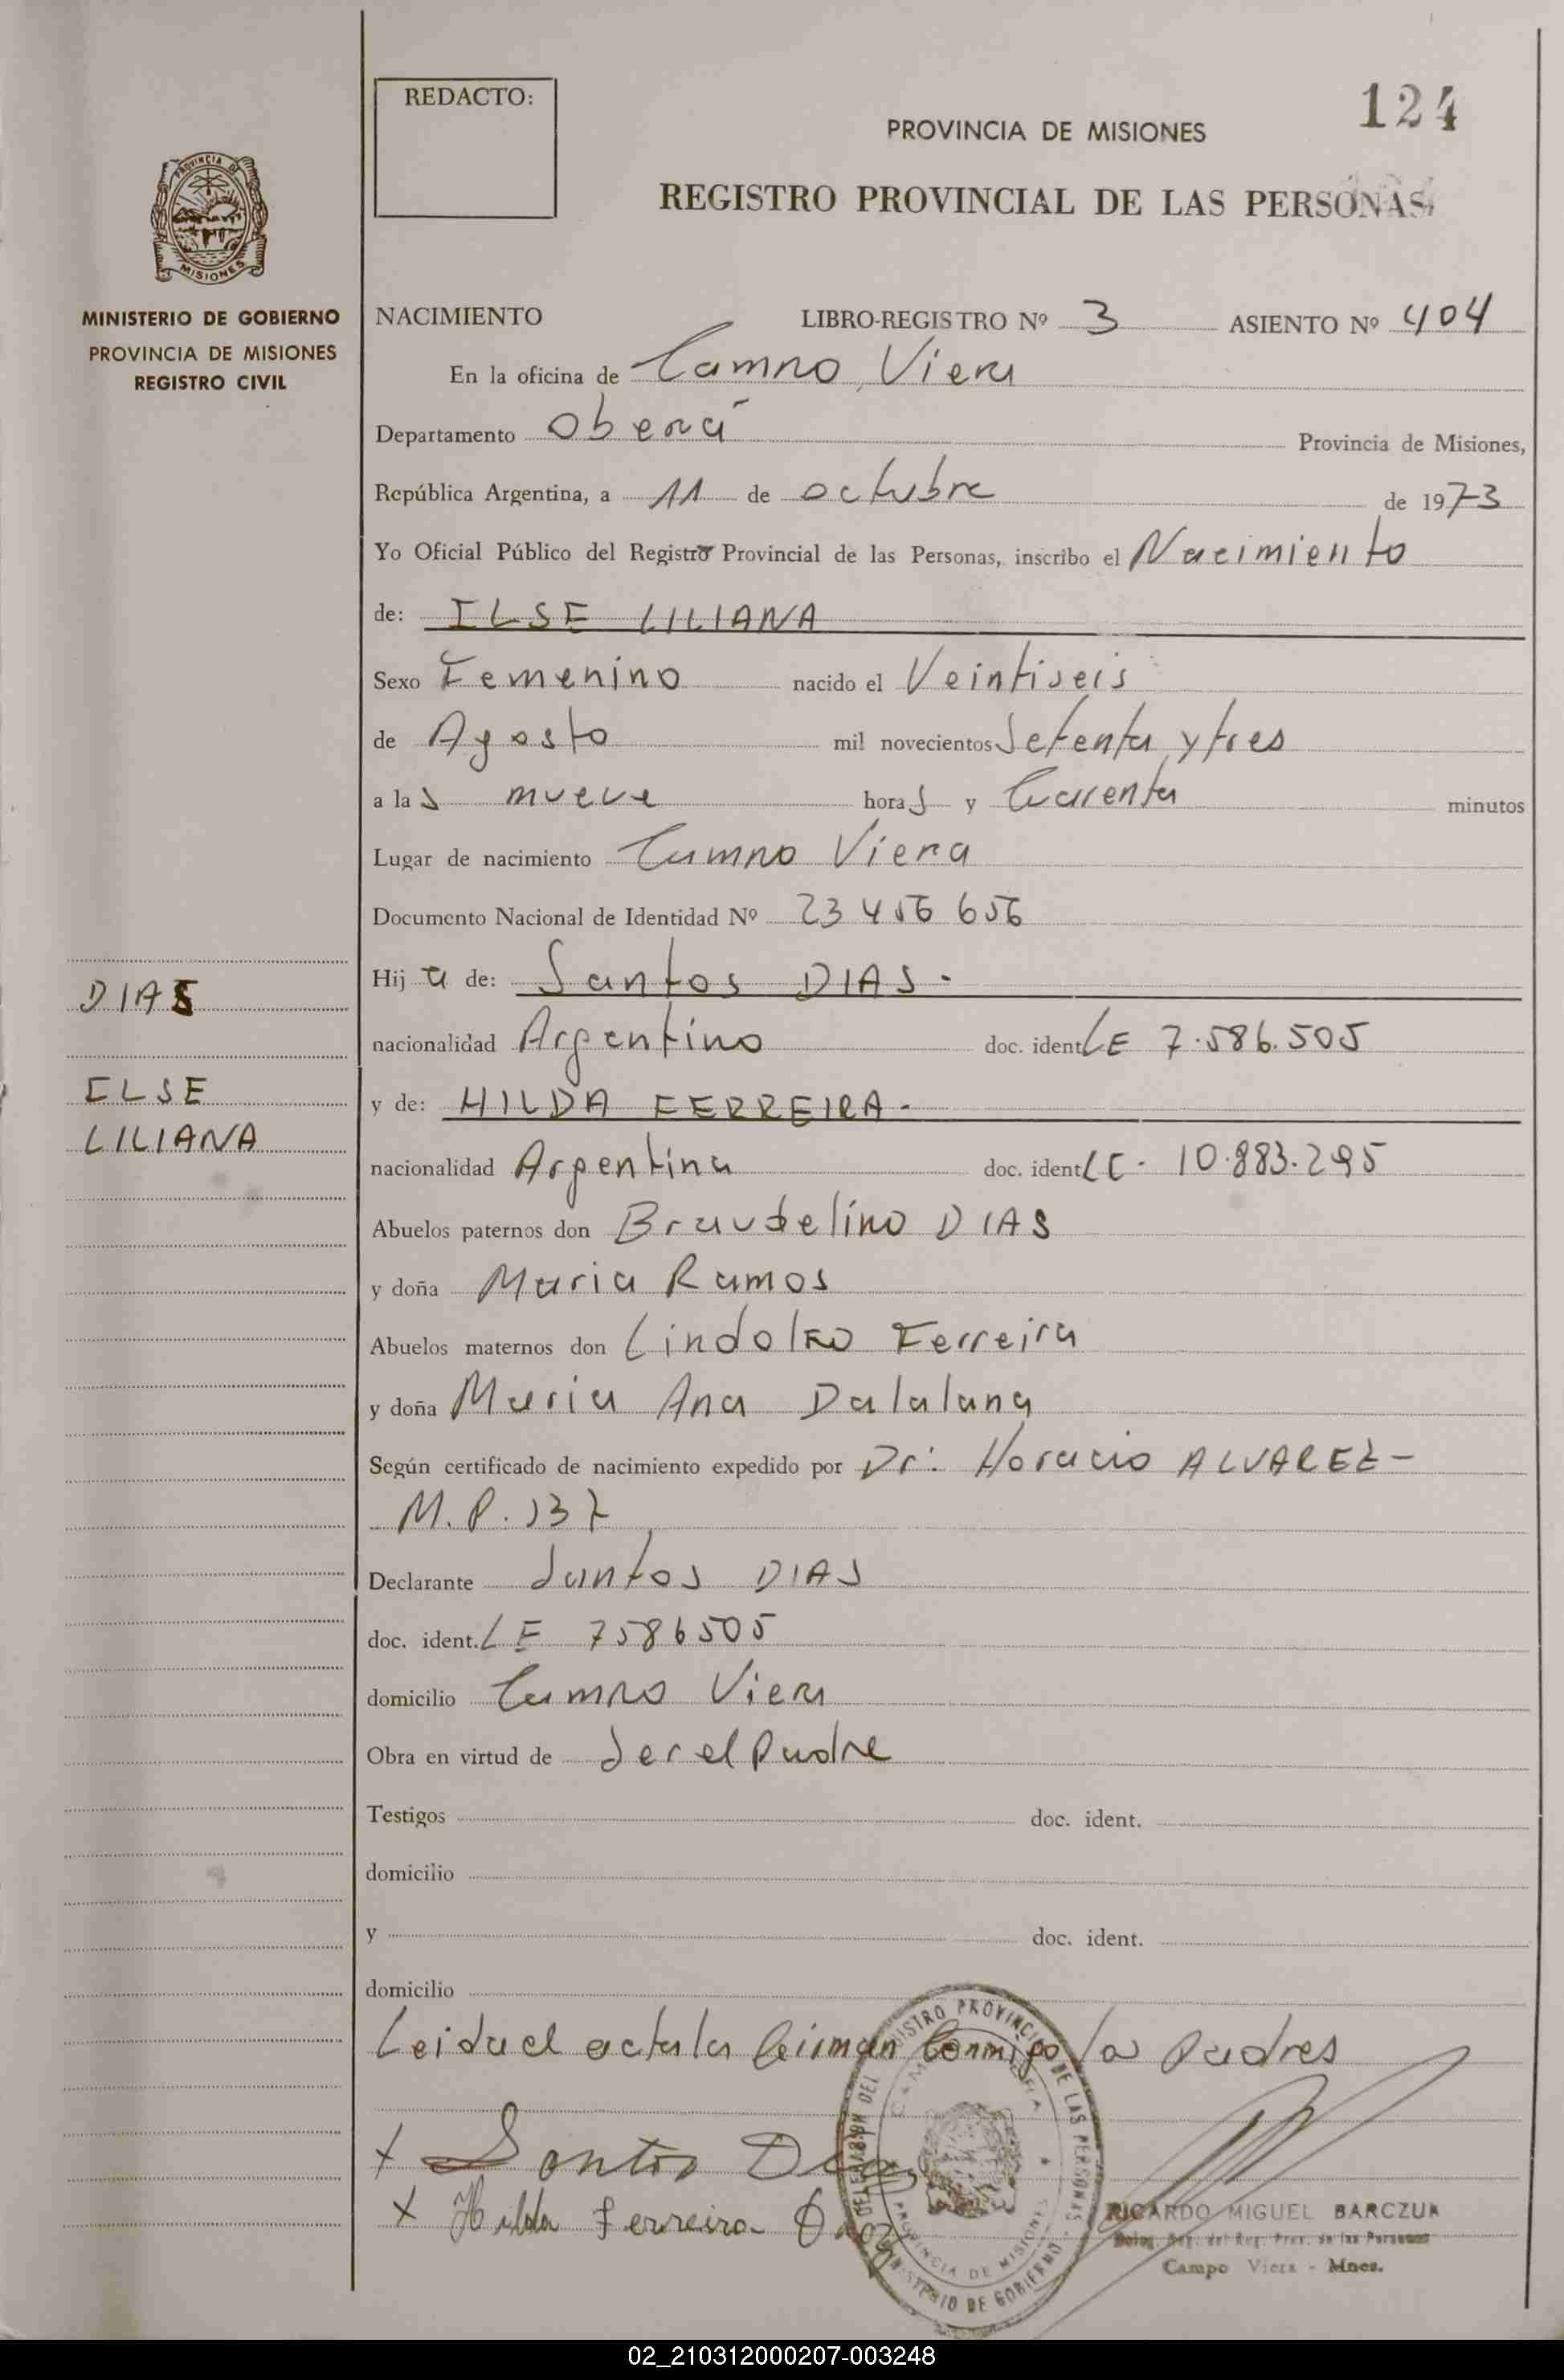 REDACTO:
124
PROVINCIA DE MISIONES
REGISTRO PROVINCIAL DE LAS PERSONAS
PROVINCIA DE
MISIONES
MINISTERIO DE GOBIERNO
PROVINCIA DE MISIONES
REGISTRO CIVIL
NACIMIENTO LIBRO-REGISTRO Nº 3 ASIENTO Nº 404
En la oficina de Campo Viera
Departamento Oberá Provincia de Misiones,
República Argentina, a 11 de octubre de 1973
Yo Oficial Público del Registro Provincial de las Personas, inscribo el Nacimiento
de: ILSE LILIANA
Sexo Femenino nacido el Veintiseis
de Agosto mil novecientos Setenta y tres
a las nueve horas y Cuarenta minutos
Lugar de nacimiento Campo Viera
Documento Nacional de Identidad Nº 23 456 656
Hija de: Santos DIAS.
DIAS
nacionalidad Argentino doc. ident. LE 7.586.505
ILSE
LILIANA
y de: HILDA FERREIRA.
nacionalidad Argentina doc. ident. LC. 10.883.295
Abuelos paternos don Braudelino DIAS
y doña Maria Ramos
Abuelos maternos don Lindolfo Ferreira
y doña Maria Ana Dalalana
Según certificado de nacimiento expedido por Dr: Horacio ALVAREZ-
M.P. 137
Declarante Santos DIAS
doc. ident. LE 7586505
domicilio Campo Viera
Obra en virtud de ser el Padre
Testigos doc. ident.
domicilio
y doc. ident.
domicilio
Leida el acta la firman Conmigo los Padres
x Santos Dias
x Hilda Ferreira
DELEGACION DEL REGISTRO PROVINCIAL DE LAS PERSONAS
MINISTERIO DE GOBIERNO
PROVINCIA DE MISIONES
RICARDO MIGUEL BARCZUK
Deleg. Reg. del Reg. Prov. de las Personas
Campo Viera - Mnes.
02_210312000207-003248